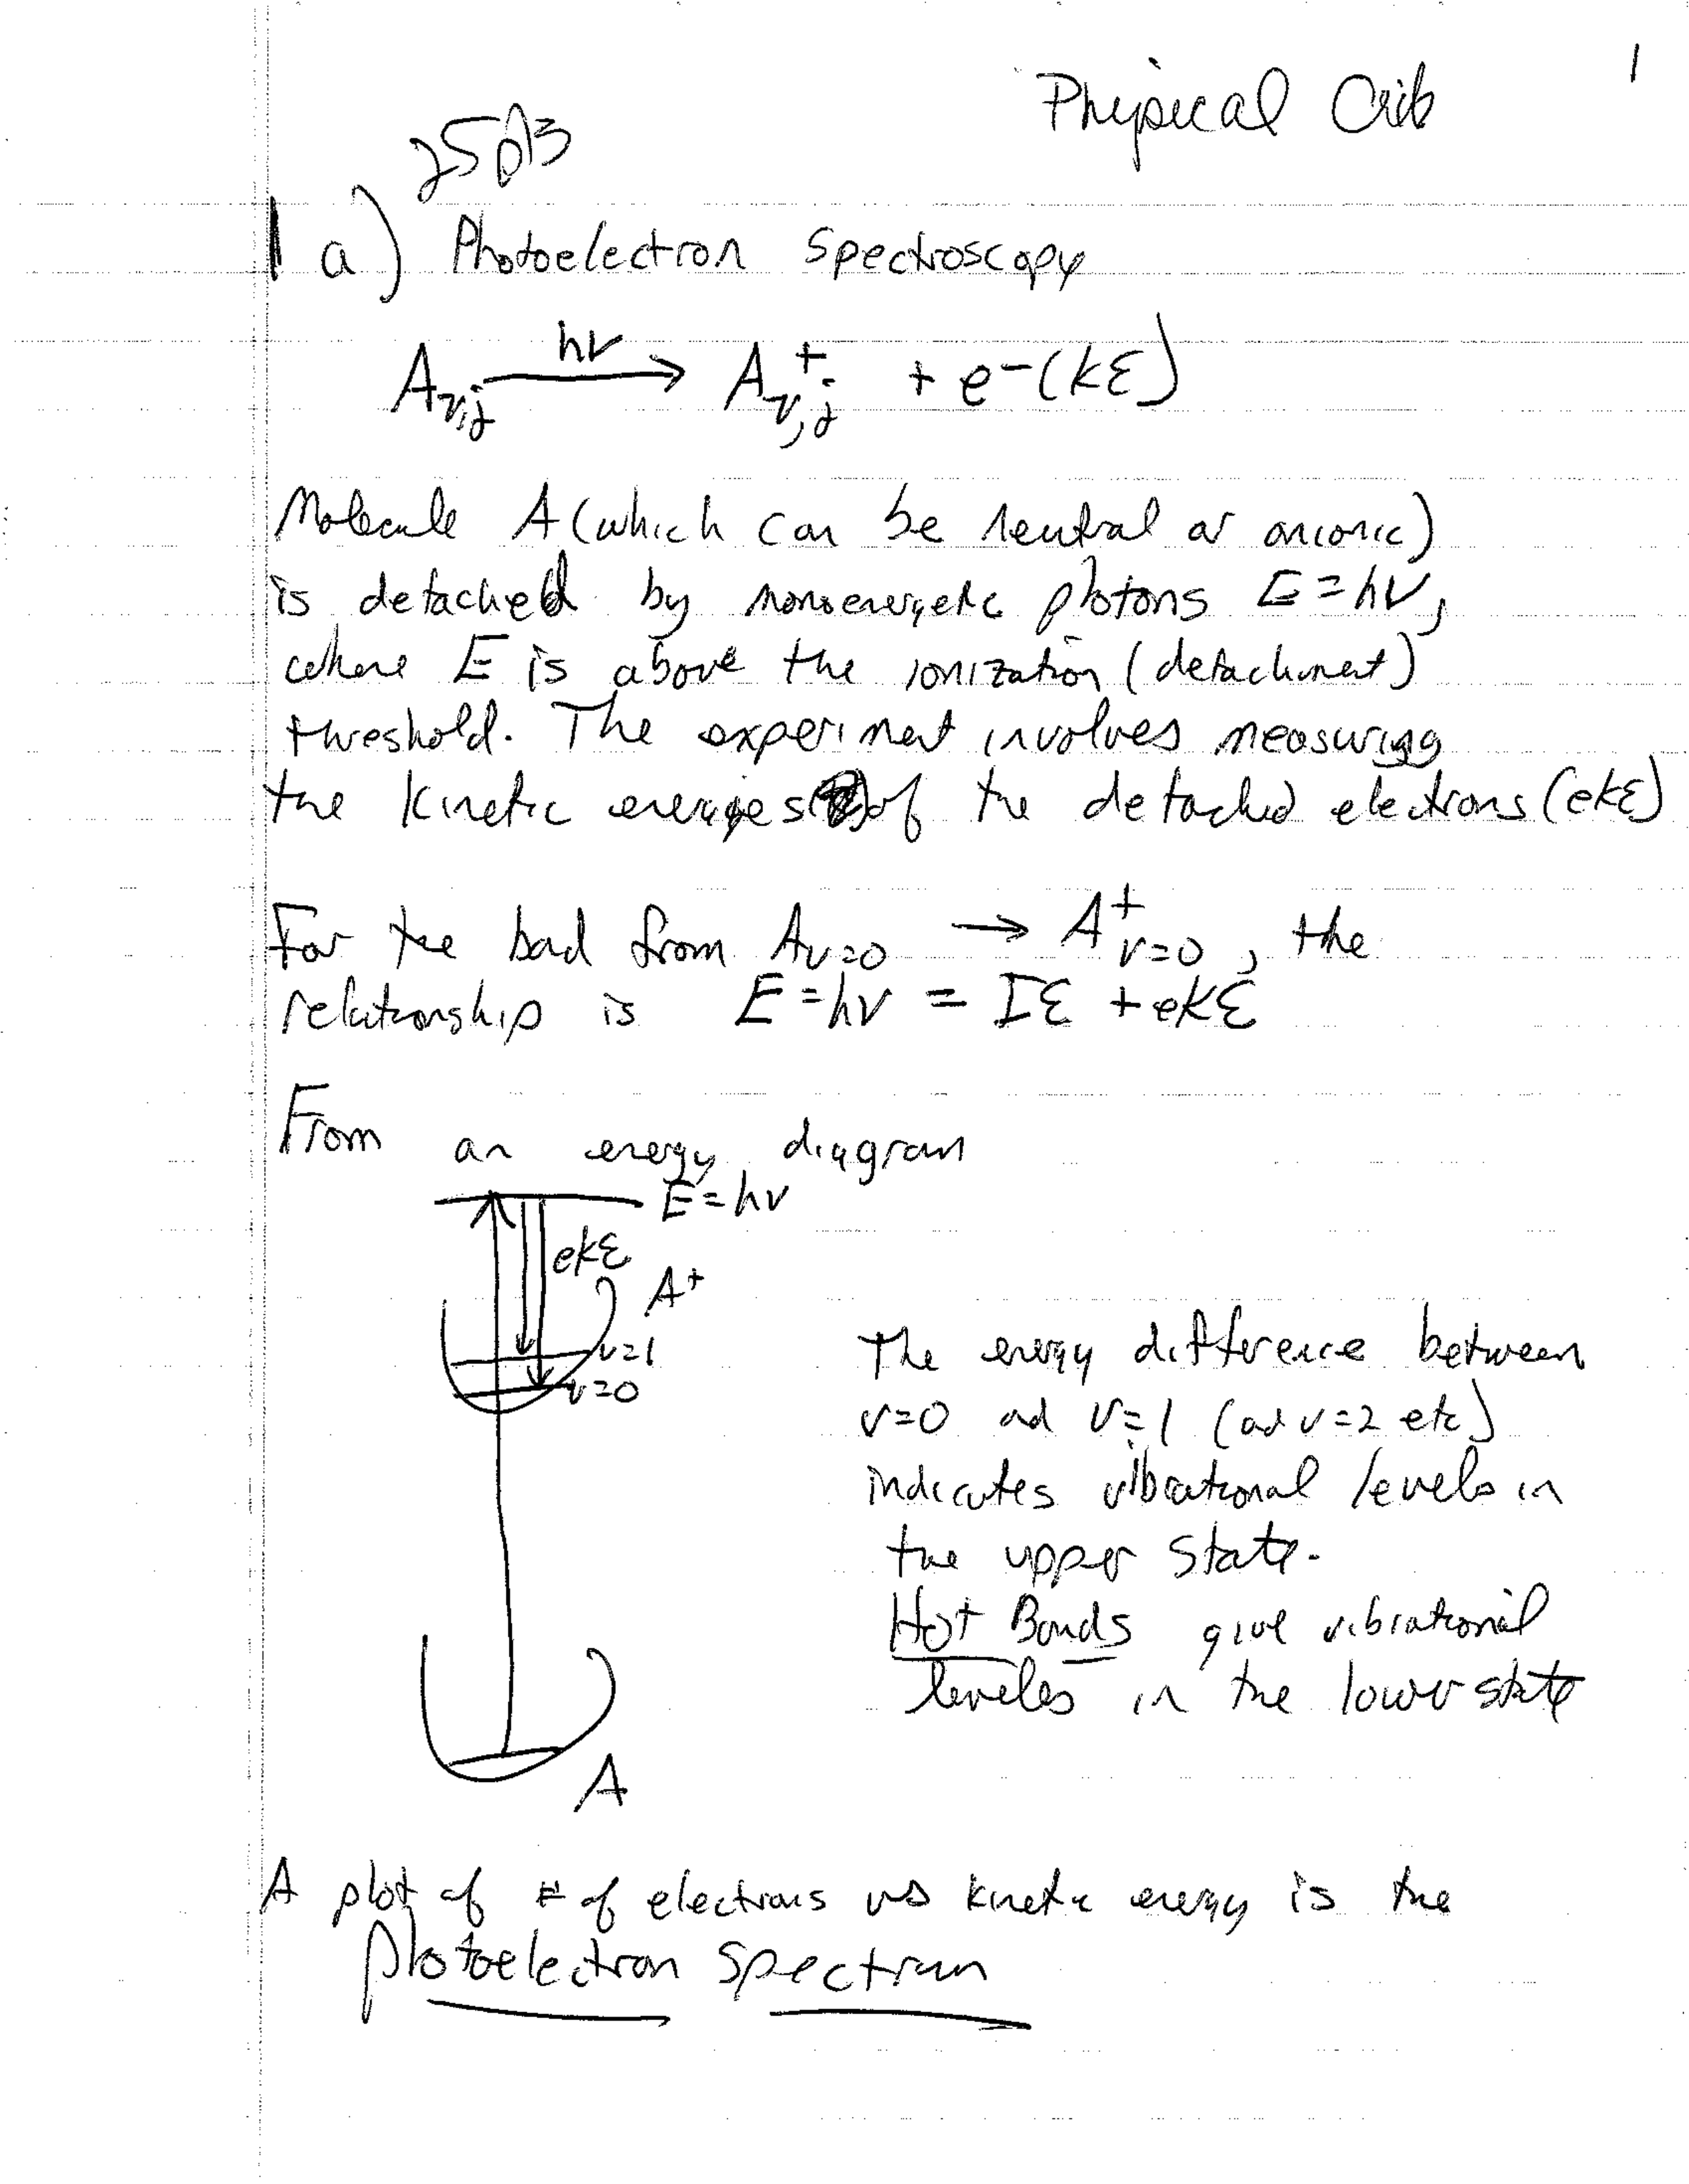 Physical Crib 1
25pts
1 a) Photoelectron Spectroscopy
A_{v,j} \xrightarrow{hν} A^+_{v,j} + e^-(kε)
Molecule A (which can be neutral or anionic)
is detached by monoenergetic photons E = hν,
where E is above the ionization (detachment)
threshold. The experiment involves measuring
the kinetic energies of the detached electrons (ekε)
For the band from A_{v=0} → A^+_{v=0}, the
relationship is E = hν = Iε + ekε
From an energy diagram
E = hν
ekε
A^+
v=1
v=0
A
The energy difference between
v=0 and v=1 (and v=2 etc)
indicates vibrational levels in
the upper state.
Hot Bands give vibrational
levels in the lower state
A plot of # of electrons vs kinetic energy is the
photoelectron spectrum